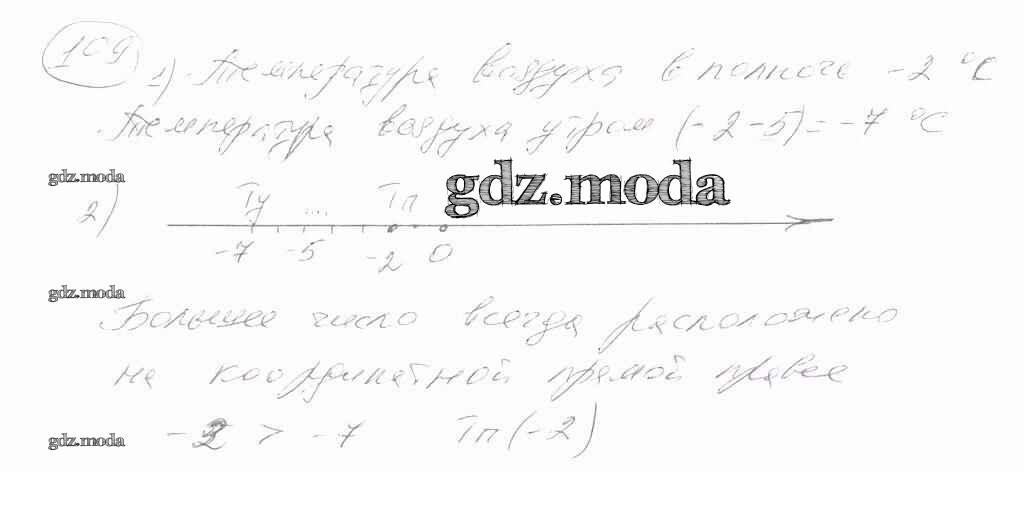 109
1) Температура воздуха в полночь -2 °С
Температура воздуха утром (-2-5)=-7 °С
gdz.moda
gdz.moda
2)
Ту .... Тп
-7 -5 -2 0
gdz.moda
Большее число всегда расположено
на координатной прямой правее
gdz.moda
-2 > -7 Тп(-2)